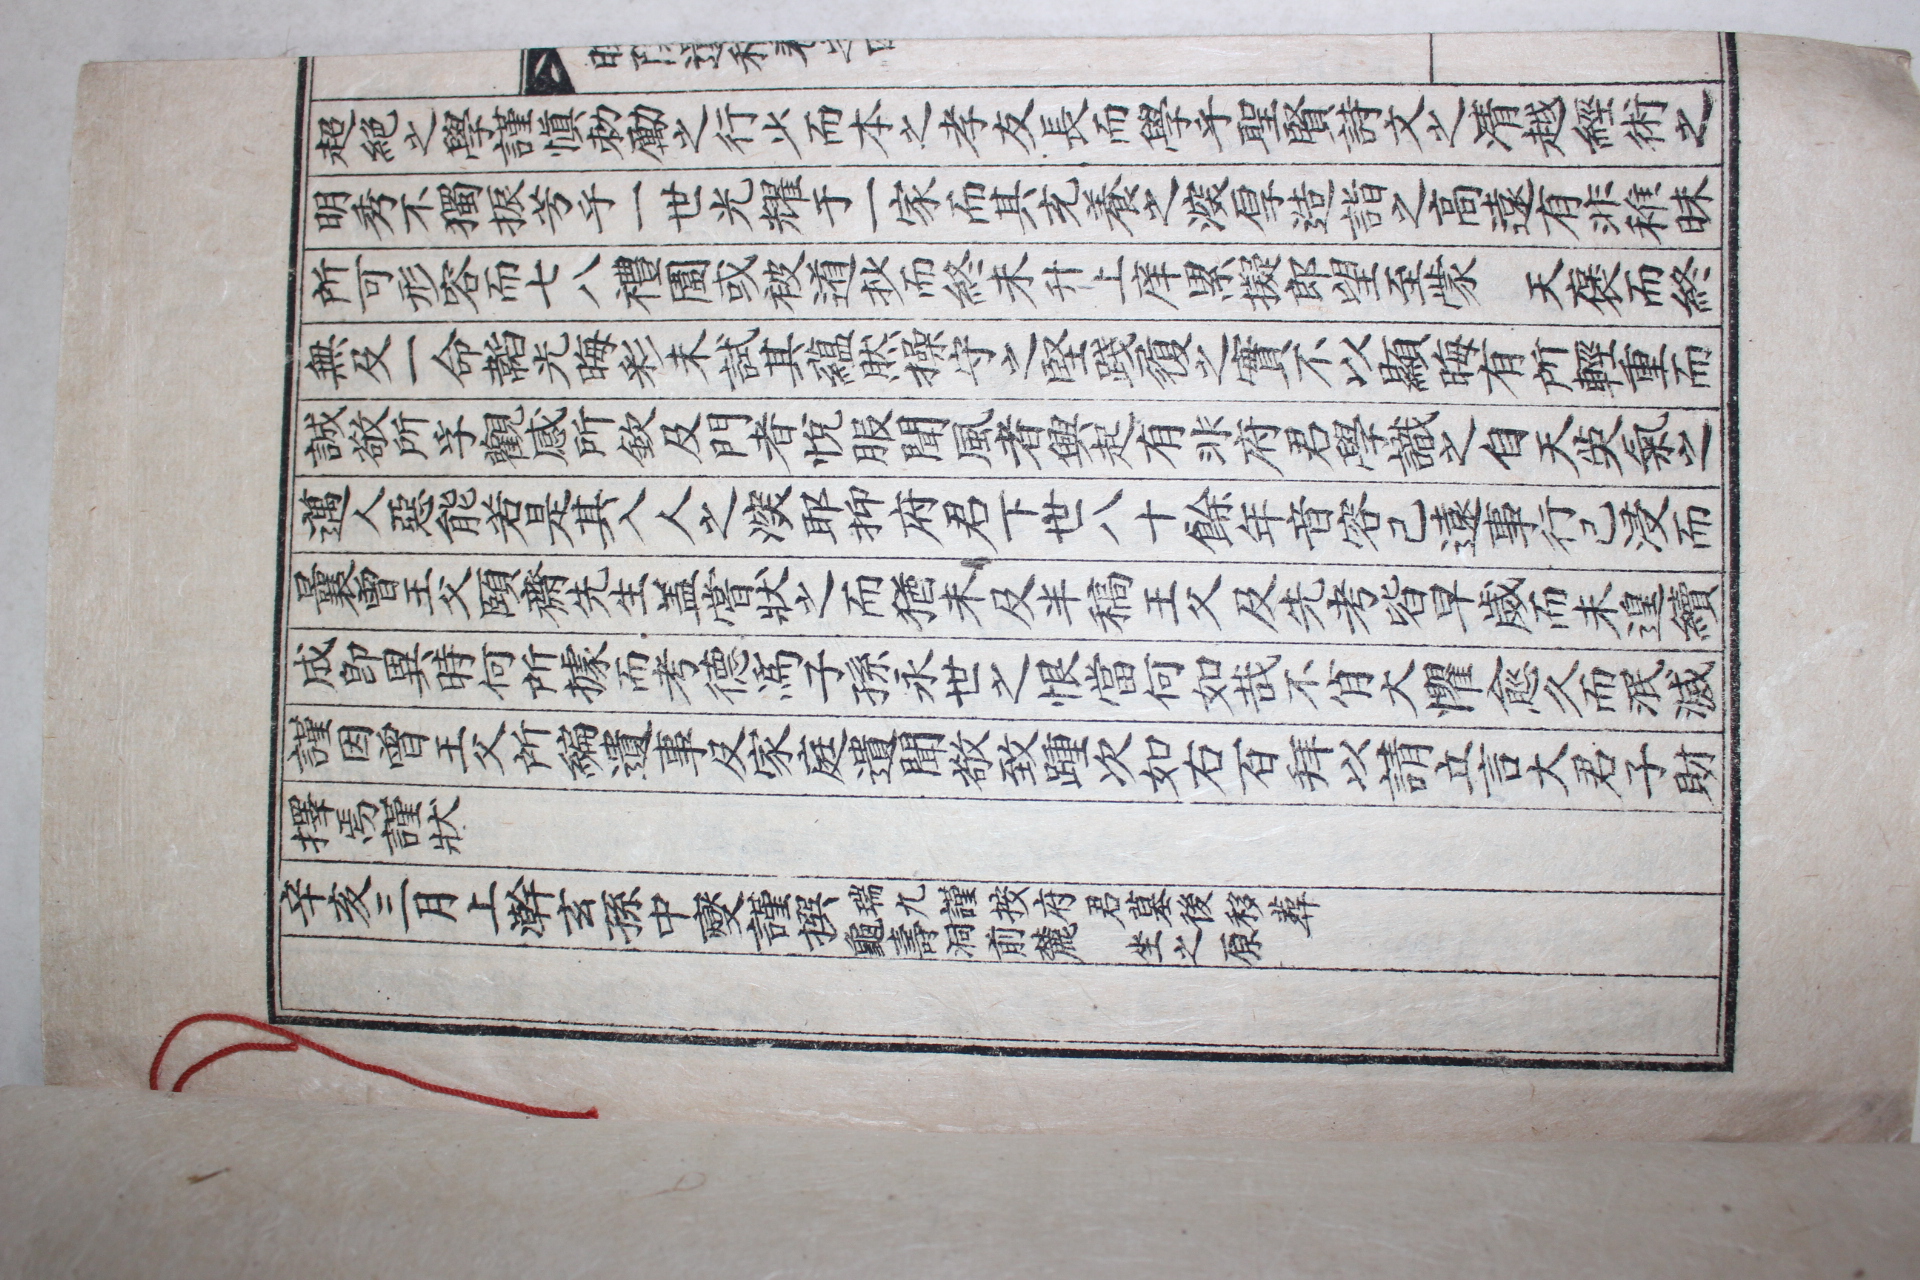 超絶之學謹愼勅勵之行少而本之孝友長而學乎聖賢詩文之淸越經術之
明秀不獨振芳乎一世光耀于一家而其充養之深厚造詣之高遠有非稚昧
所可形容而七八禮圍或被道拔而終未升上庠累擬郎望至蒙 天褒而終
無及一命韜光晦彩未試其蘊然操守之堅踐履之實不以顯晦有所輕重而
誠敬所孚觀感所致及門者悅服聞風者興起有非府君學識之自天英氣之
邁人惡能若是其入人之深耶抑府君下世八十餘年音容已遠事行已浸而
曩曾王父頤齋先生盖嘗狀之而猶未及半稿王父及先考皆早歲而未遑續
成卽異時何所據而考德爲子孫永世之恨當何如哉不肖大懼愈久而泯滅
謹因曾王父所編遺事及家庭遺聞敢致踵次如右百拜以請立言大君子財
擇焉謹狀
辛亥三月上澣玄孫中燮謹撰
瑞九謹按府君墓後移葬
龜壽洞前麓 坐之原